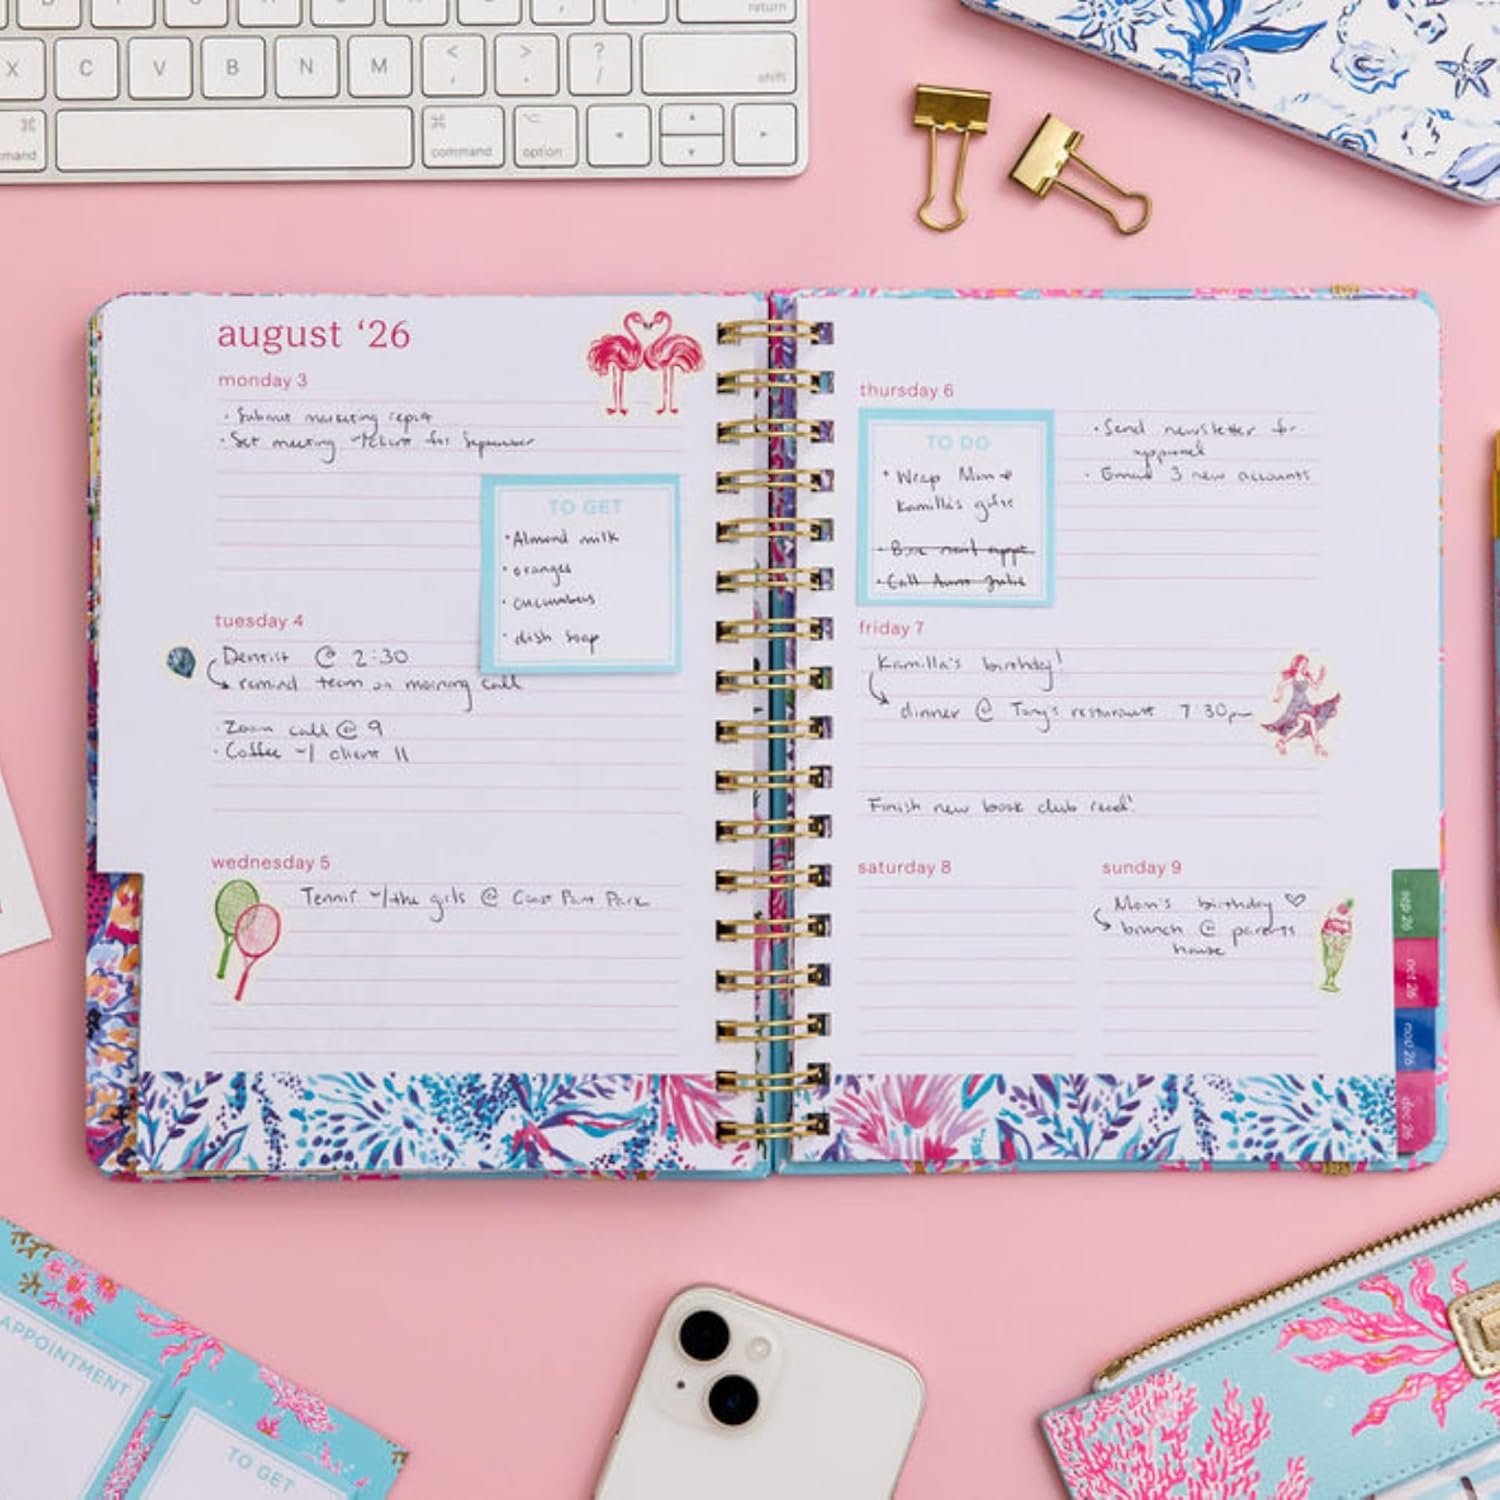 return
X C V B N M < , > . ? / shift
⌘ mand ⌘ command ⌥ option
august ‘26
monday 3
· Submit marketing report
· Set meeting w/ client for September
TO GET
· Almond milk
· oranges
· cucumbers
· dish soap
tuesday 4
Dentist @ 2:30
remind team on morning call
· Zoom call @ 9
· Coffee w/ client 11
wednesday 5
Tennis w/ the girls @ Coast Park
thursday 6
TO DO
· Wrap Mom +
Kamilla's gifts
· Book nail appt.
· Call Aunt Julie
· Send newsletter for
approval
· Email 3 new accounts
friday 7
Kamilla's birthday!
dinner @ Tony's restaurant 7:30pm
Finish new book club read!
saturday 8
sunday 9
Mom's birthday ♡
brunch @ parents
house
sep 26
oct 26
nov 26
dec 26
APPOINTMENT
TO GET